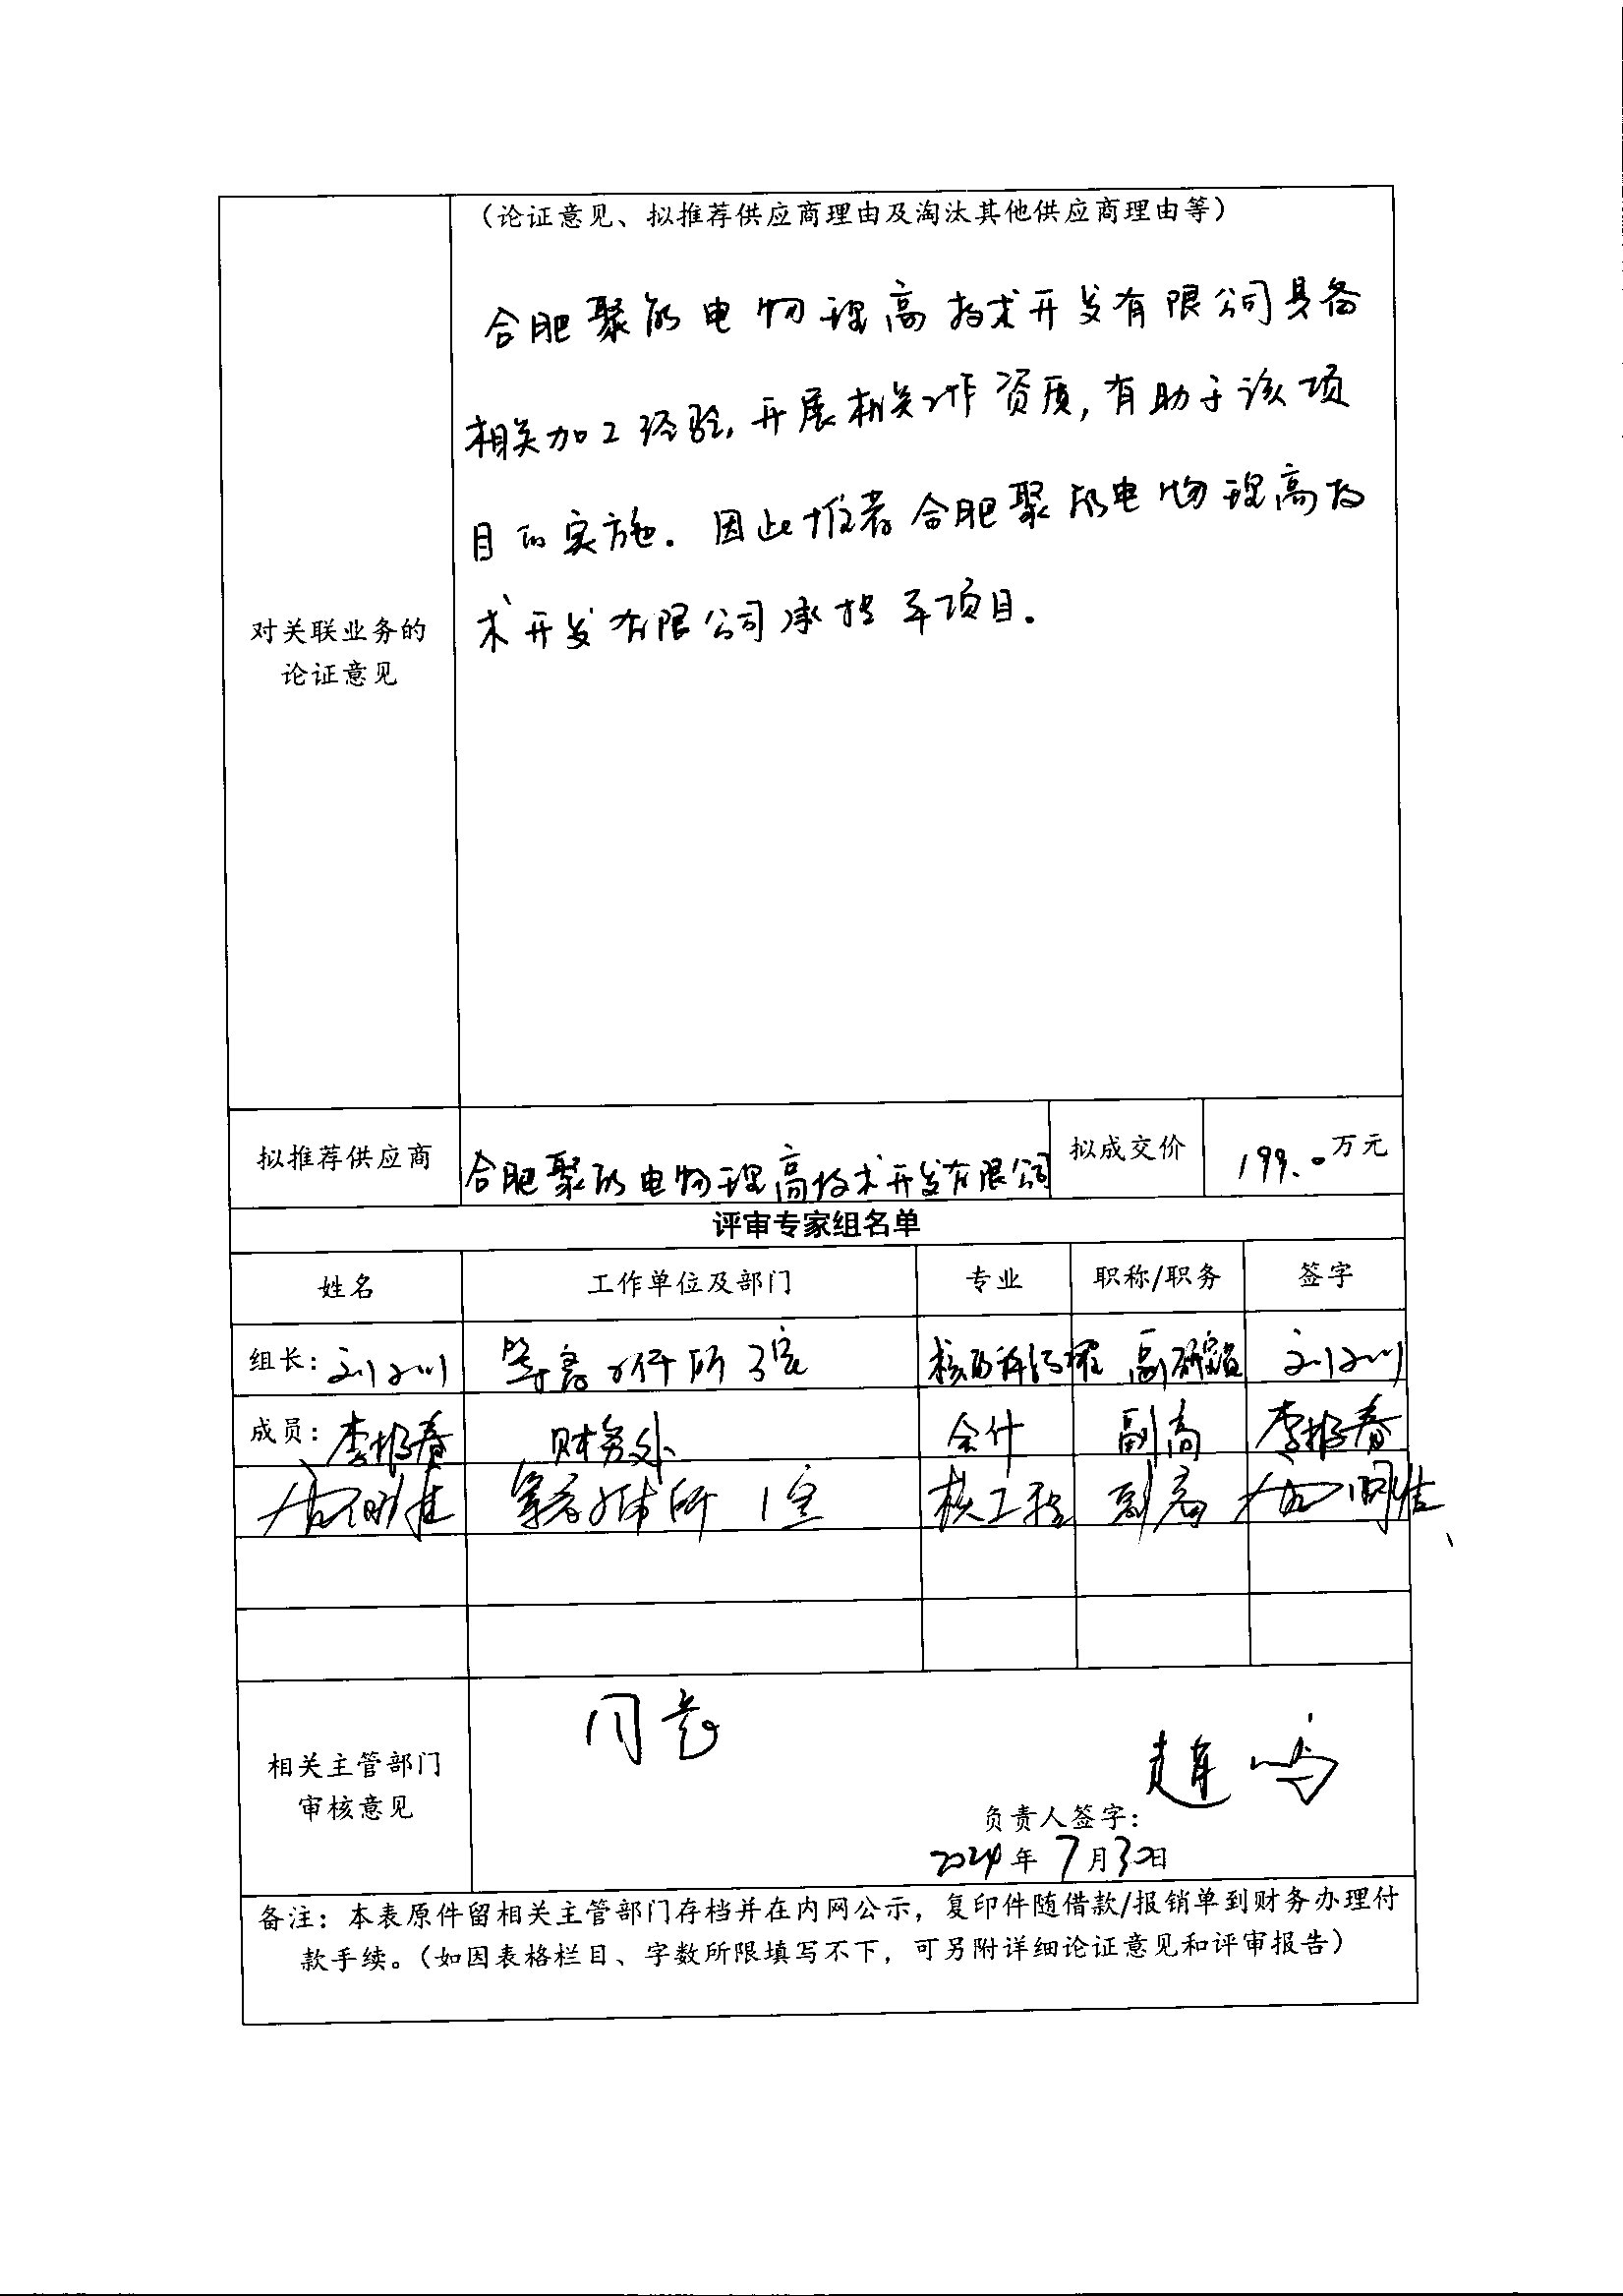 （论证意见、拟推荐供应商理由及淘汰其他供应商理由等）
合肥聚能电物理高技术开发有限公司具备
相关加工经验，开展相关工作资质，有助于该项
目的实施。因此推荐合肥聚能电物理高技
术开发有限公司承担本项目。
对关联业务的
论证意见
拟推荐供应商 合肥聚能电物理高技术开发有限公司 拟成交价 199.0万元
评审专家组名单
姓名 工作单位及部门 专业 职称/职务 签字
组长： 等离子体所 3室 副研究员
成员： 李 春 财务处 会计 副高 李 春
等离子体所 1室 核工程 副高
同意
相关主管部门
审核意见
负责人签字：
2024年7月30日
备注：本表原件留相关主管部门存档并在内网公示，复印件随借款/报销单到财务办理付
款手续。（如因表格栏目、字数所限填写不下，可另附详细论证意见和评审报告）